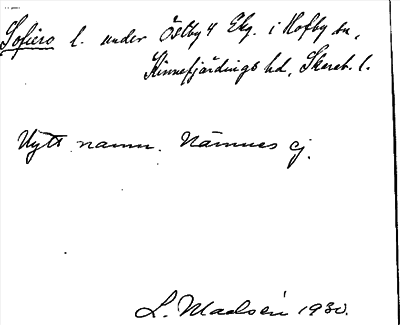 Sofiero l. under Östby 4 Ekg. i Hofby sn,
Kinnefjärdings hd, Skarab. l.
Nytt namn. Nämnes ej.
L. Madsén 1930.